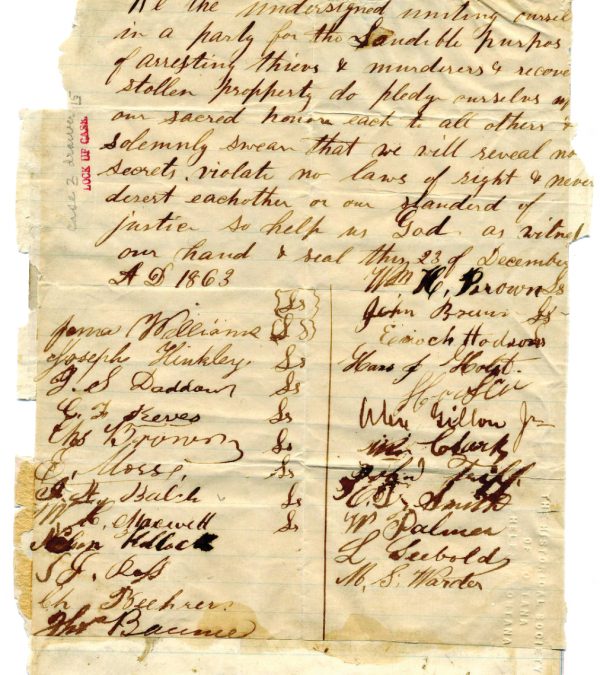 We the undersigned uniting oursel
in a party for the Laudible purpos
of arresting thievs & murderers & recove
stollen propperty do pledge ourselves up
our sacred honor each to all others &
solemnly swear that we will reveal no
secrets, violate no laws of right & never
desert eachother or our standerd of
justice so help us God as witness
our hand & seal this 23 of December
A D 1863
James Williams {Ls}
Joseph Hinkley Ls
J. S. Daddow Ls
C. F. Keeves Ls
Chs Brown Ls
E. Morse Ls
Balch Ls
W. H. Maxwell Ls
Nelson Kellock
S. J. Ross
Ch Beehrer
Thos Baume
Wm H. Brown Ls
John Brown Ls
Enoch Hodson
Hans J Holst
Alex Gillon Jr
Wm Clark
John Triff
Smith
W Palmer
L Seebold
M. S. Warder
case 2 drawer 5
LOCK UP CASE
THE HISTORICAL SOCIETY
OF
HELENA